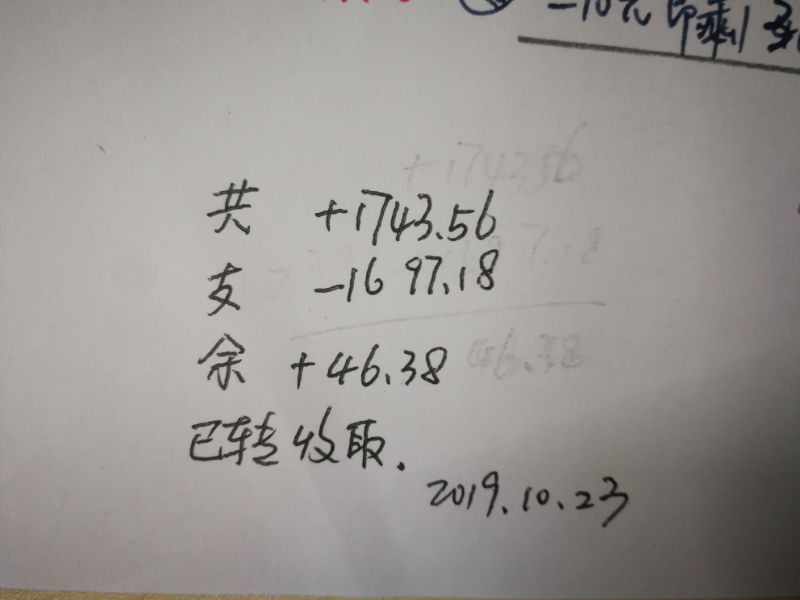 -10元 印刷
共 +1743.56
支 -1697.18
余 +46.38
已转收取.
2019.10.23